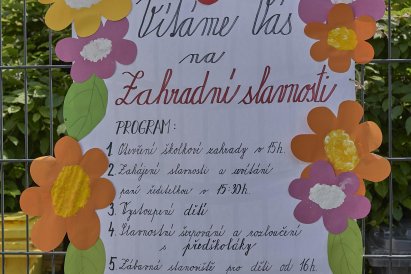 Vítáme Vás
na
Zahradní slavnosti
PROGRAM:
1. Otevření školkové zahrady v 15h.
2. Zahájení slavnosti a uvítání
paní ředitelkou v 15:30h.
3. Vystoupení dětí
4. Slavnostní šerpování a rozloučení
s předškoláky
5. Zábavná stanoviště pro děti od 16h.